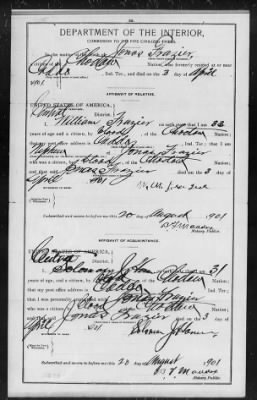 DEPARTMENT OF THE INTERIOR,
COMMISSION TO THE FIVE CIVILIZED TRIBES.
Jonas Frazier,
Choctaw Nation, who formerly resided at or near
Caddo, Ind. Ter., and died on the 3 day of April
1901
AFFIDAVIT OF RELATIVE.
UNITED STATES OF AMERICA,
Central District.
William Frazier on oath state that I am 32
years of age and a citizen, by blood, of the Choctaw Nation;
that my post office address is Caddo, Ind. Ter.; that I am
Nephew of Jonas Frazier
who was a citizen, by blood, of the Choctaw Nation;
and that said Jonas Frazier died on the 3 day of
April 1901
Subscribed and sworn to before me this 20 day of August 1901
Notary Public.
AFFIDAVIT OF ACQUAINTANCE.
UNITED STATES OF AMERICA,
Central District.
Solomon J Homer on oath state that I am 31
years of age, and a citizen, by blood, of the Choctaw Nation;
that my post office address is Caddo, Ind. Ter.;
that I was personally acquainted with Jonas Frazier
who was a citizen, by blood, of the Choctaw Nation;
and that said Jonas Frazier died on the 3 day of
April 1901
Solomon J Homer
Subscribed and sworn to before me this 20 day of August 1901
Notary Public.